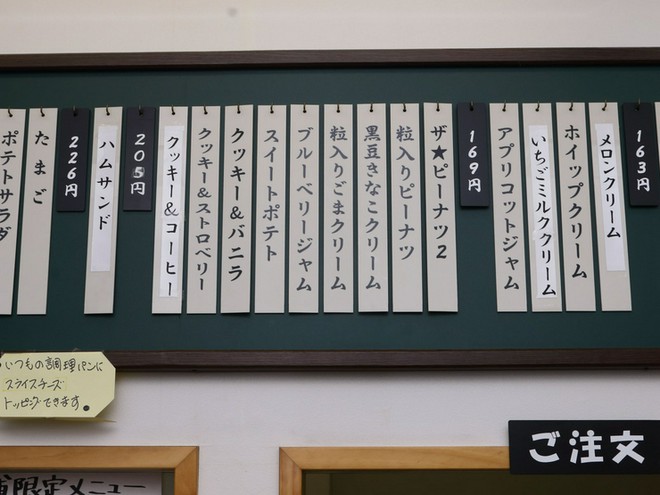 163円
メロンクリーム
ホイップクリーム
いちごミルククリーム
アプリコットジャム
169円
ザ★ピーナツ2
粒入りピーナツ
黒豆きなこクリーム
粒入りごまクリーム
ブルーベリージャム
スイートポテト
クッキー&バニラ
クッキー&ストロベリー
クッキー&コーヒー
205円
ハムサンド
226円
たまご
ポテトサラダ
いつもの調理パンに
スライスチーズ
トッピングできます。
限定メニュー
ご注文